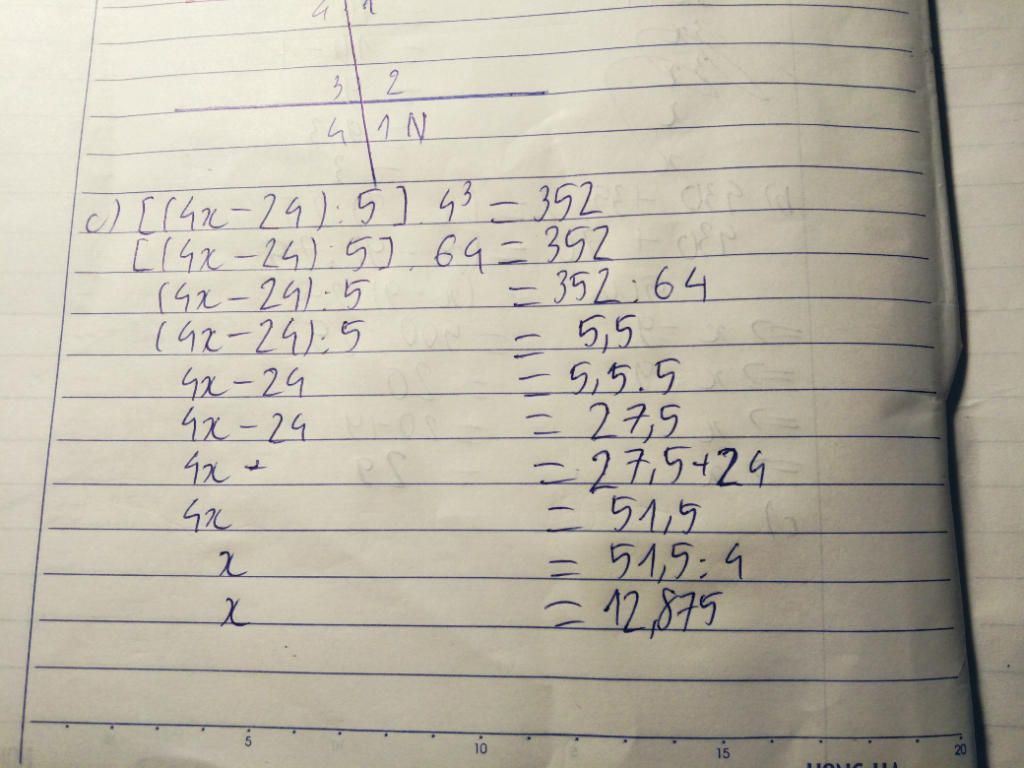 4 1
3 2
4 1 N
c) [(4x - 24) : 5] . 4³ = 352
[(4x - 24) : 5] . 64 = 352
(4x - 24) : 5 = 352 : 64
(4x - 24) : 5 = 5,5
4x - 24 = 5,5 . 5
4x - 24 = 27,5
4x - = 27,5 + 24
4x = 51,5
x = 51,5 : 4
x = 12,875
5 10 15 20